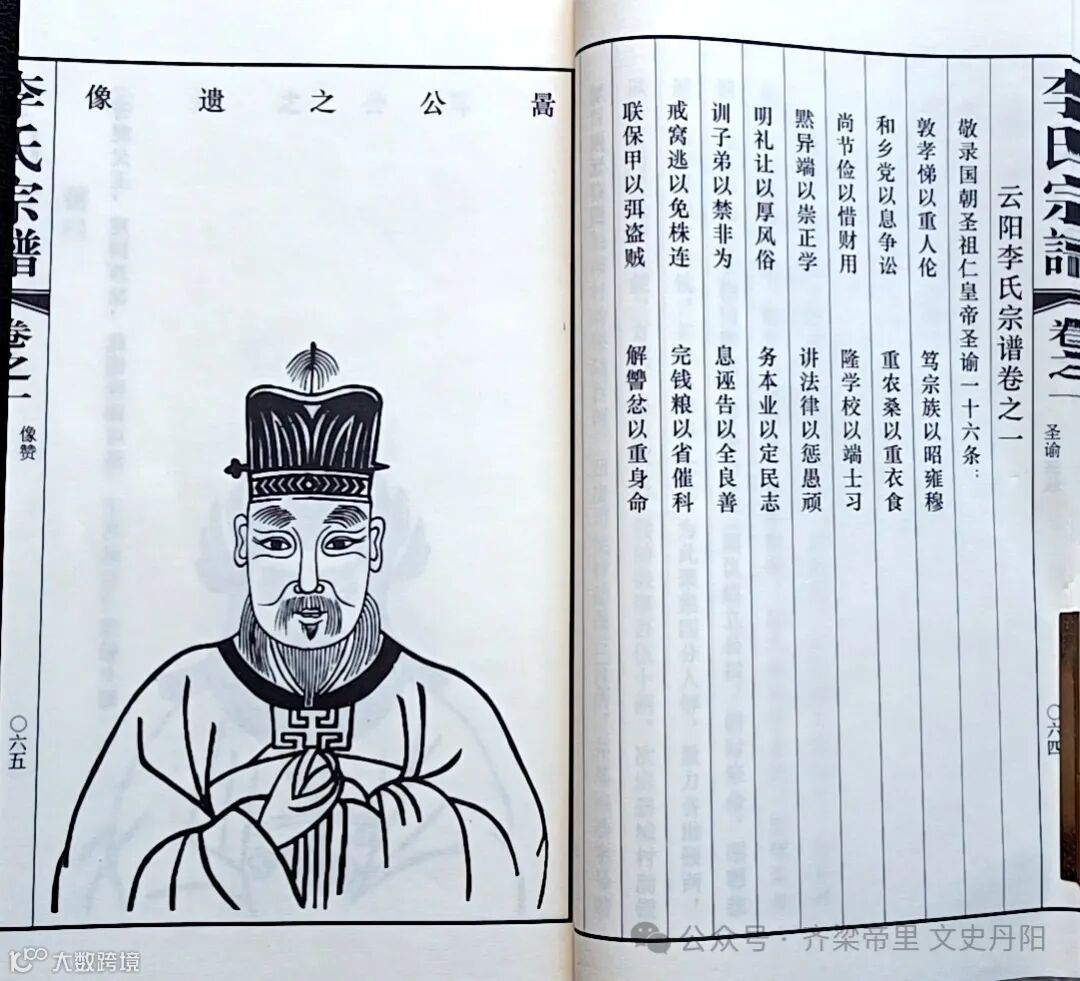 李氏宗谱
卷之一
圣谕
〇六四
云阳李氏宗谱卷之一
敬录国朝圣祖仁皇帝圣谕一十六条：
敦孝悌以重人伦 笃宗族以昭雍穆
和乡党以息争讼 重农桑以重衣食
尚节俭以惜财用 隆学校以端士习
黜异端以崇正学 讲法律以惩愚顽
明礼让以厚风俗 务本业以定民志
训子弟以禁非为 息诬告以全良善
戒窝逃以免株连 完钱粮以省催科
联保甲以弭盗贼 解讐忿以重身命
暠公之遗像
李氏宗谱
卷之一
像赞
〇六五
公众号 · 齐梁帝里 文史丹阳
大数跨境